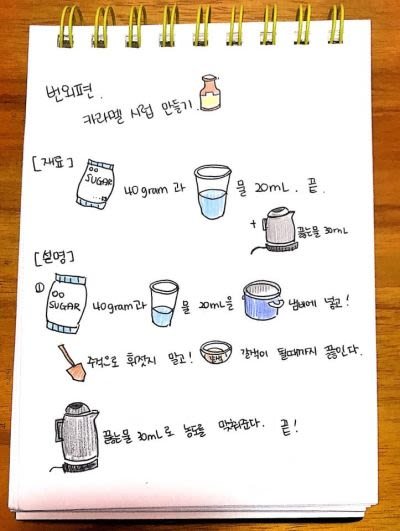 번외편.
카라멜 시럽 만들기
[재료] SUGAR 40gram과 물 20mL. 끝.
+ 끓는물 30mL
[설명]
① SUGAR 40gram과 물 20mL을 냄비에 넣고!
주걱으로 휘젓지 말고! 갈색이 될때까지 끓인다.
끓는물 30mL로 농도를 맞춰준다. 끝!